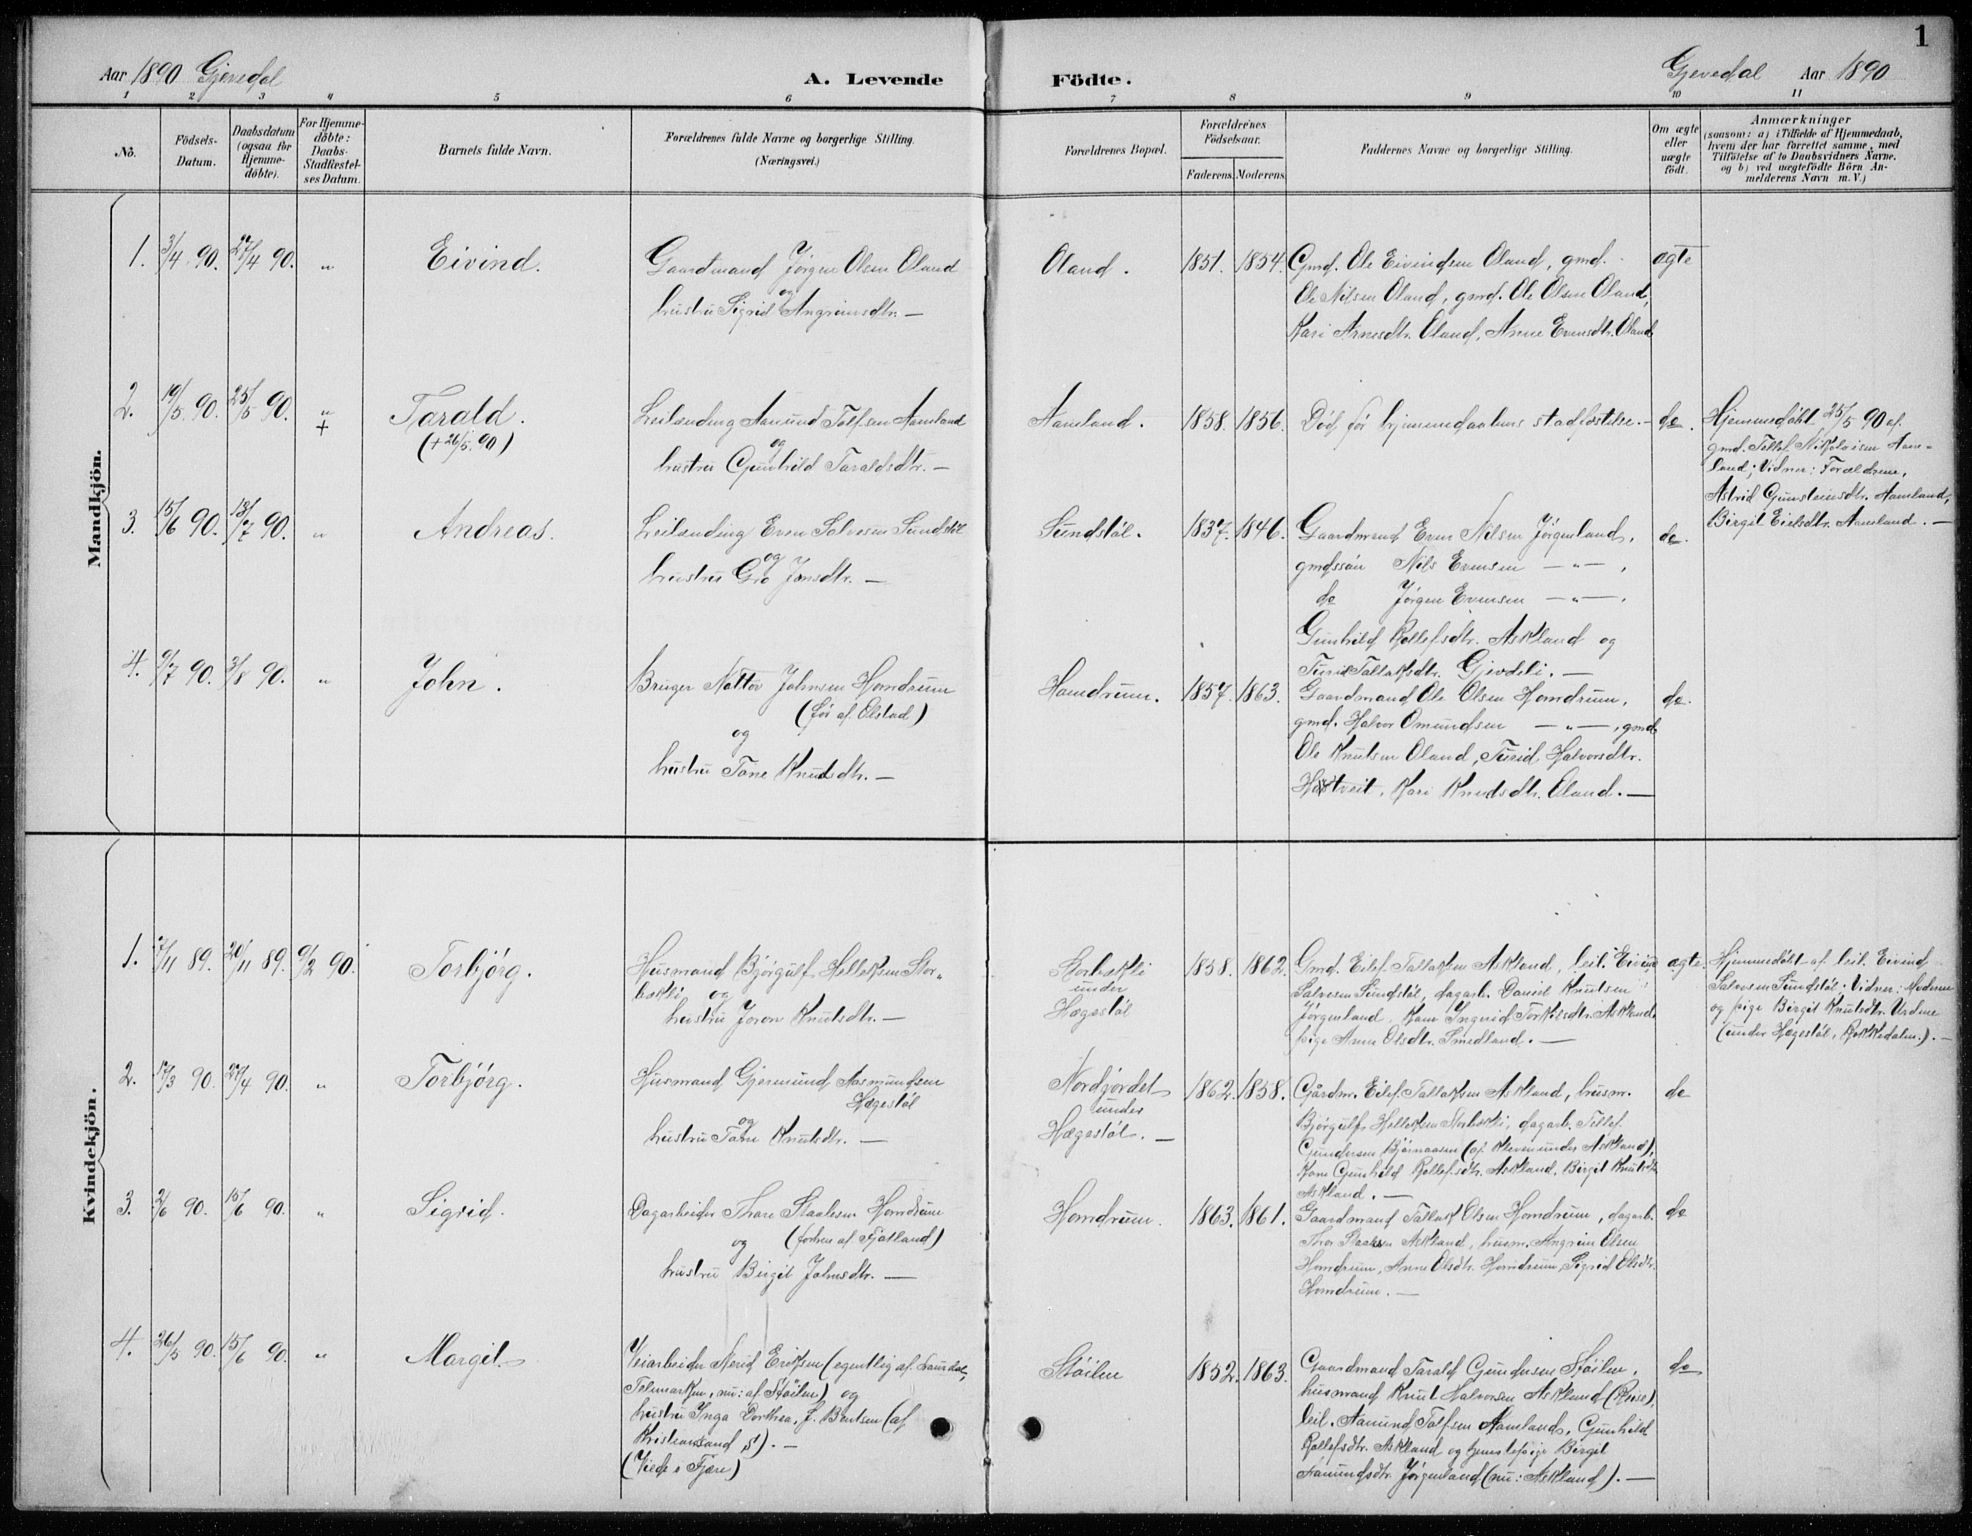 1
Aar 1890 Gjevedal
A. Levende
Födte.
Gjevedal Aar 1890
1 2 3 4 5 6 7 8 9 10 11
No.
Födsels-
Datum.
Daabsdatum
(ogsaa for
Hjemme-
döbte).
For Hjemme-
döbte:
Daabs-
Stadfæstel-
ses Datum.
Barnets fulde Navn.
Forældrenes fulde Navne og borgerlige Stilling.
(Næringsvei.)
Forældrenes Bopæl.
Forældrenes
Födselsaar.
Faderens. Moderens.
Faddernes Navne og borgerlige Stilling.
Om ægte
eller
uægte
födt.
Anmærkninger
(saasom: a) i Tilfælde af Hjemmedaab,
hvem der har forrettet samme, med
Tilföielse af to Daabsvidners Navne.
og b) ved uægtefödte Börn An-
melderens Navn m. V.)
Mandkjön.
1. 3/4 90. 27/4 90. " Eivind. Gaardmand Jørgen Olsen Øland
og
hustru Sigrid Angrimsdtr. —
Øland. 1851. 1854. Gmd. Ole Eivindsen Øland, gmd. ægte
Ole Nilsen Øland, gmd. Ole Olsen Øland,
Kari Arnesdtr. Øland, Anne Evensdtr. Øland
2. 19/5 90. 25/5 90. " + Tarald.
(+ 26/5 90)
Leilænding Aanund Tolfsen Aamland
og
hustru Gunhild Taraldsdtr. —
Aamland. 1858. 1856. Død før hjemmedaabens stadfæstelse. — do.
Hjemmedøbt 25/5 90 af
gmd. Tellef Nikolaisen Aam-
land; Vidner: Forældrene,
Astrid Gunsteinsdtr. Aamland,
Birgit Eielsdtr. Aamland. —
3. 15/6 90. 13/7 90. " Andreas. Leilænding Even Salvesen Sundstøl
og
hustru Gro Jonsdtr. —
Sundstøl. 1837. 1846. Gaardmand Even Nilsen Jørgenland, do.
gmdssøn Nils Evensen — " — ,
do Jørgen Evensen — " — ,
Gunhild Rollefsdtr. Askland og
Turid Tallaksdtr. Gjevdeli. —
4. 9/7 90. 3/8 90. " John. Bruger Nottov Johnsen Homdrum
(før af Ølstad)
og
hustru Tone Knudsdtr. —
Homdrum. 1857. 1863. Gaardmand Ole Olsen Homdrum, do.
gmd. Halvor Omundsen — " — , gmd.
Ole Knutsen Øland, Turid Halvorsdtr.
tveit, Kari Knudsdtr. Øland. —
Kvindekjön.
1. 7/11 89. 20/11 89. 9/2 90. Torbjørg. Husmand Bjørgulf Helleksen Stor-
bækli og
hustru Joron Knutsdtr. —
Storbækli
under
Hægestøl
1858. 1862. Gmd. Eilef Tallaksen Askland, leil. Eivind ægte.
Salvesen Sundstøl, dagarb. Daniel Knutsen
Jørgenland, Kone Ingerid Torkilsdtr. Askland,
pige Anne Olsdtr. Smedland. —
Hjemmedøbt af leil. Eivind
Salvesen Sundstøl; Vidner: Moderen
og pige Birgit Knutsdtr. Urdene
(under Hægestøl, Rokkedalen.). —
2. 17/3 90. 27/4 90. " Torbjørg. Husmand Gjermund Aasmundsen
Hægestøl
og
hustru Tone Knutsdtr. —
Nordjordet
under
Hægestøl. —
1862. 1858. Gårdmr. Eilef Tallaksen Askland, husm. do
Bjørgulf Helleksen Storbækli, dagarb. Tellef
Gundersen Bjørnaasen (af Kleven under Askland),
Kone Gunhild Rollefsdtr. Askland, Birgit Knutsdtr.
Askland. —
3. 2/6 90. 15/6 90. " Sigrid. Dagarbeider Thore Staalesen Homdrum
(forhen af Fjotland)
og
hustru Birgit Johnsdtr. —
Homdrum. 1863. 1861. Gaardmand Tallak Olsen Homdrum, dagarb. do
Thor Askland, husm. Angrim Olsen
Homdrum, Anne Olsdtr. Homdrum, Sigrid Olsdtr.
Homdrum. —
4. 26/5 90. 15/6 90. " Margit. Veiarbeider Nerid Eriksen (egentlig af
Telemarken, nu: af Støilen) og
hustru Inga Dorthea, f. Bentsen (af
Kristiansand S). —
(Viede i Fjære)
Støilen 1852. 1863. Gaardmand Tarald Gundersen Støilen, do
husmand Knut Halvorsen Askland (Roise),
leil. Aanund Tolfsen Aamland, Gunhild
Rollefsdtr. Askland og tjenestepige Birgit
Aanundsdtr. Jørgenland (nu: Askland). —